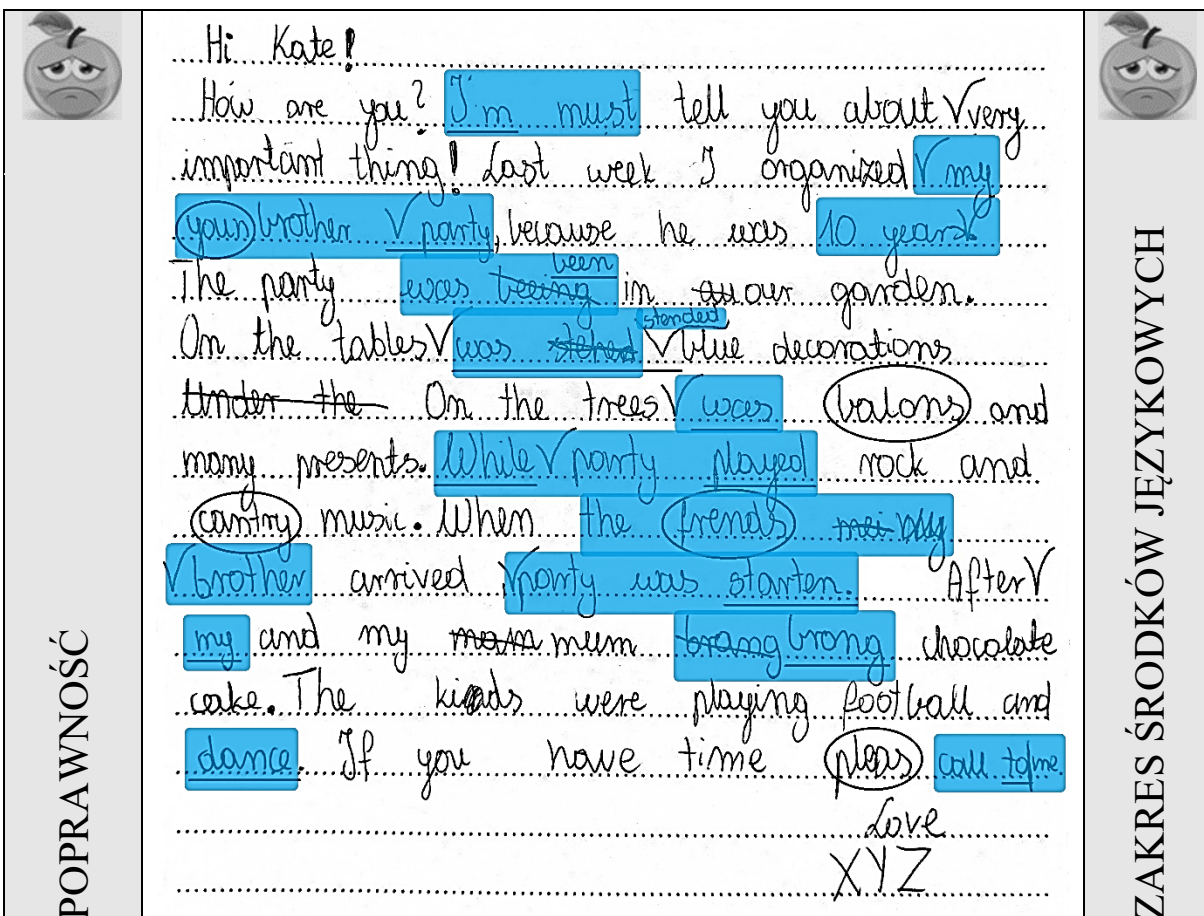 Hi Kate!
How are you? I'm must tell you about V very
important thing! Last week I organized V my
youn brother V party, because he was 10 years V.
The party was beeing been in our garden.
On the tables V was stended V blue decorations
Under the On the trees V was balons and
many presents. While V party played rock and
cantry music. When the frends my
V brother arrived V party was starten. After V
my and my mom mum brang brong chocolate
cake. The kids were playing football and
dance. If you have time pleas call to me.
Love
XYZ
POPRAWNOŚĆ
ZAKRES ŚRODKÓW JĘZYKOWYCH